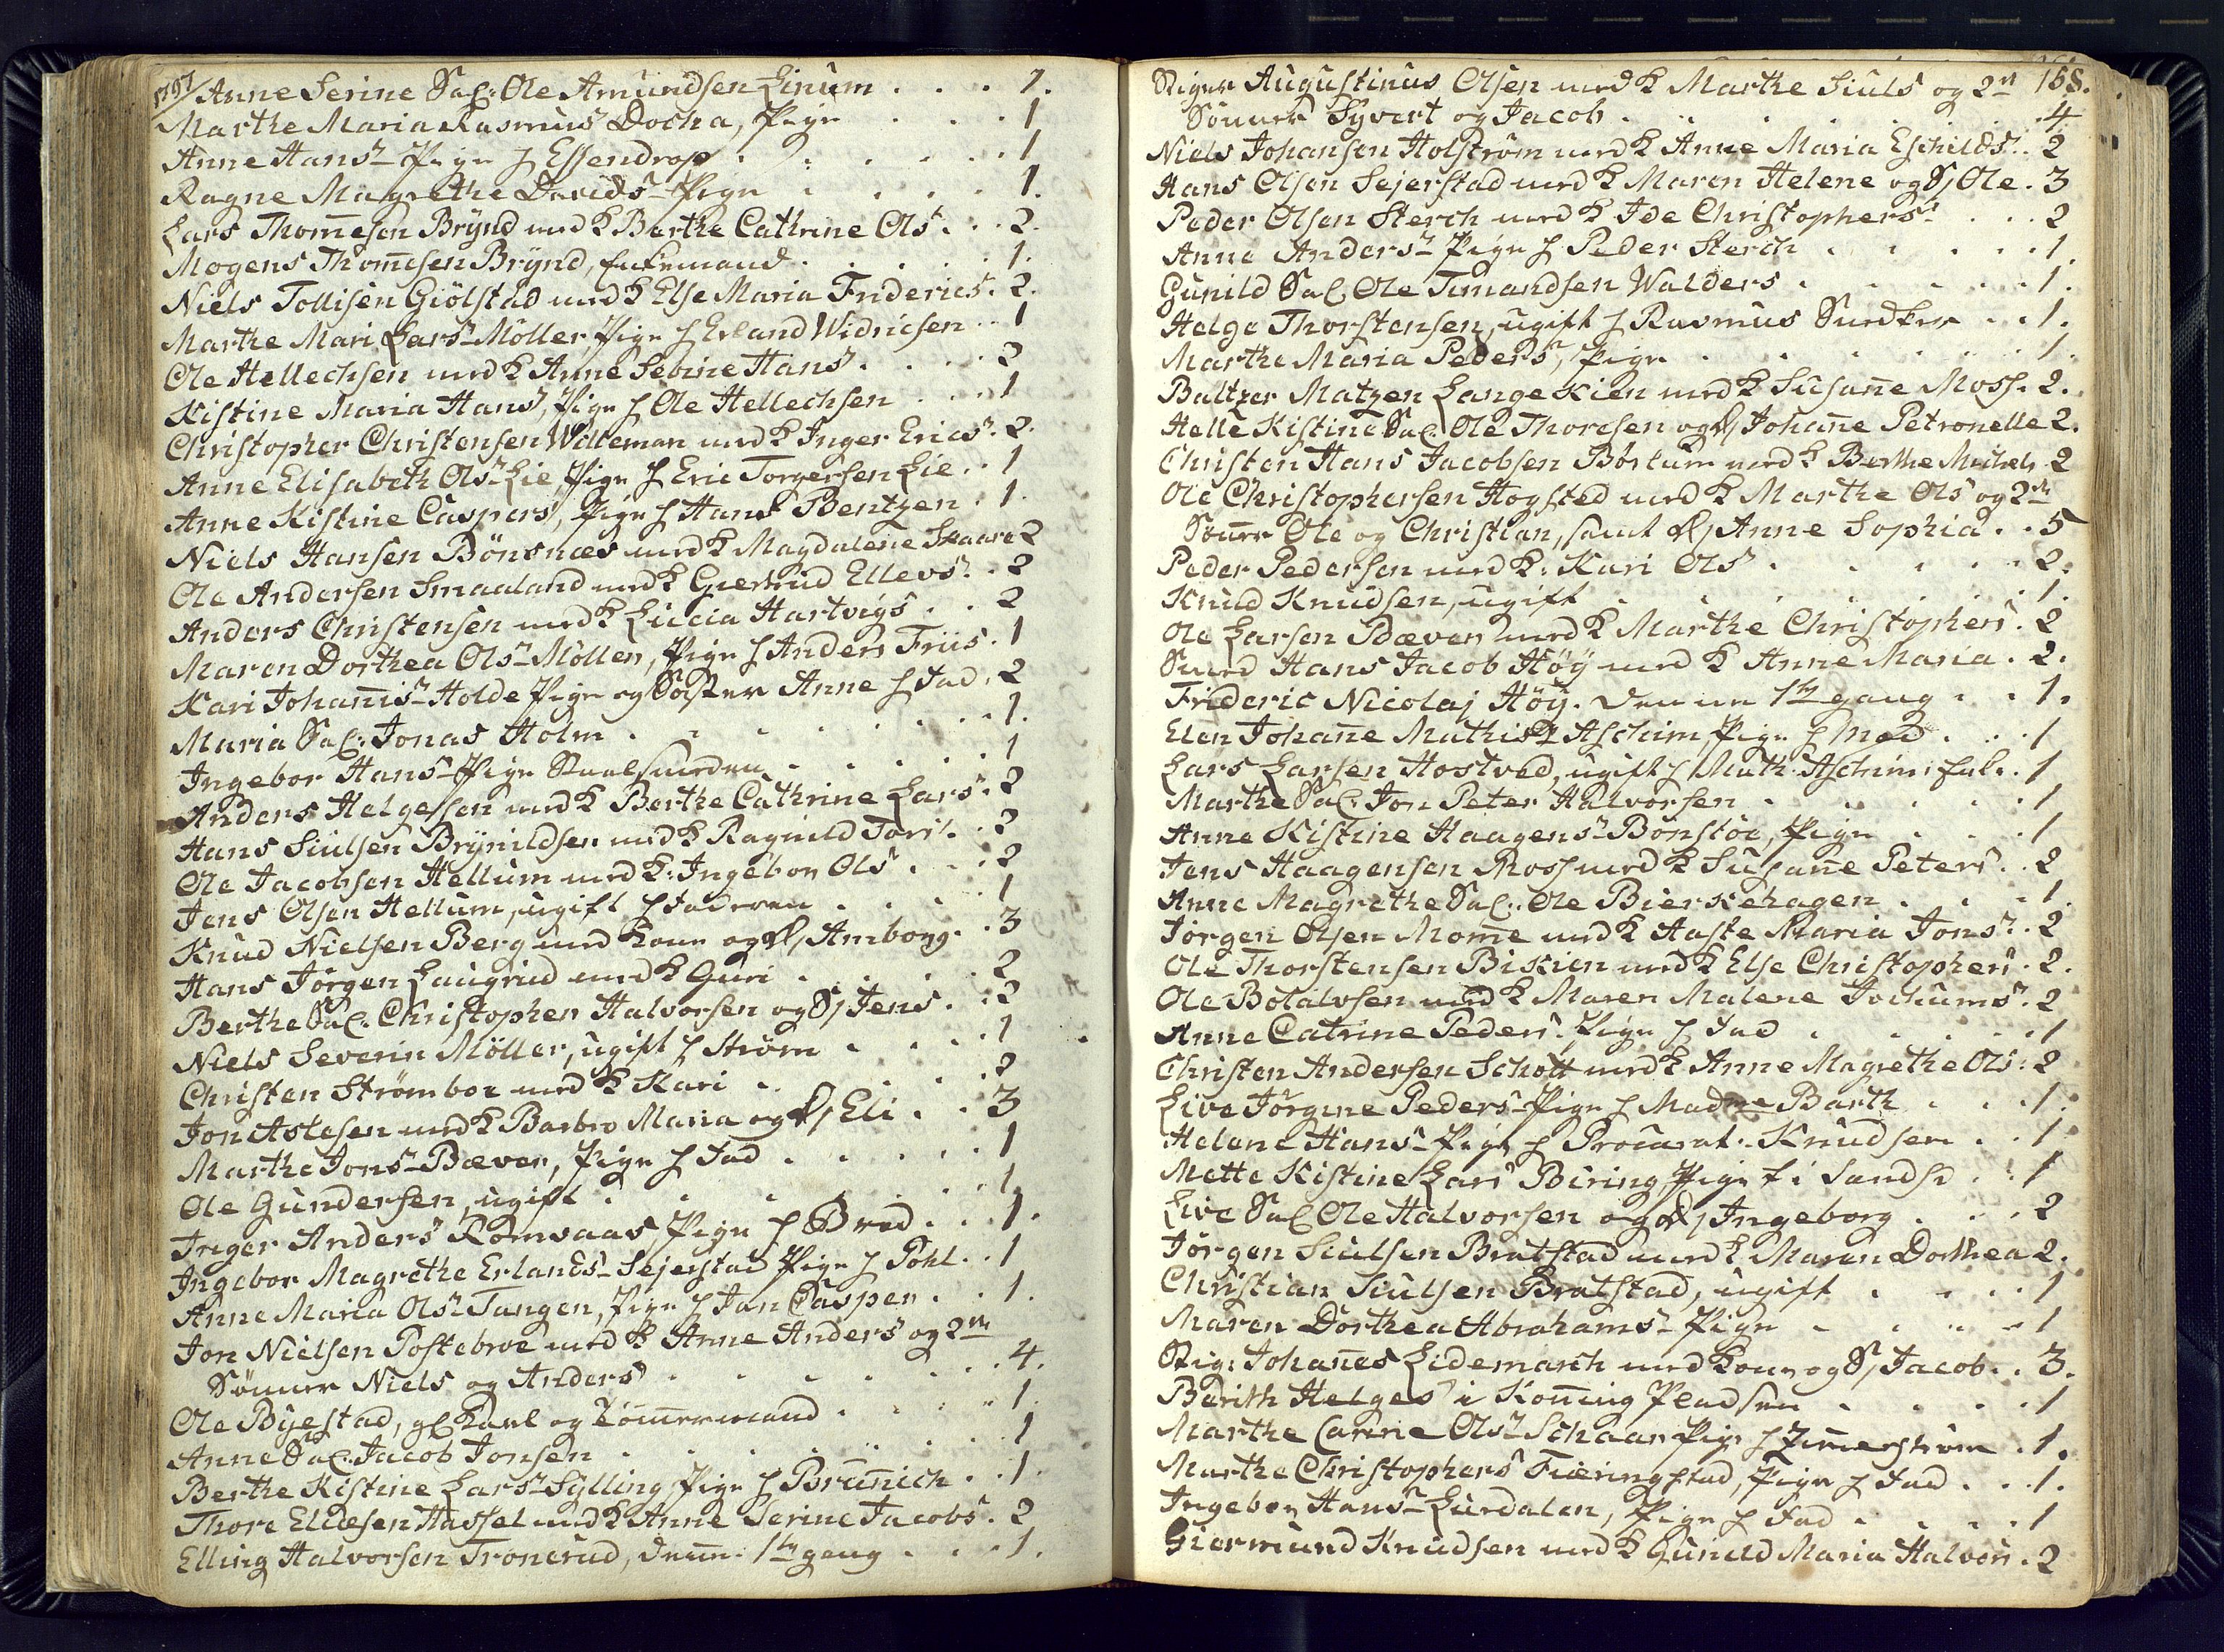 1797 Anne Serine Sal: Ole Amundsen Linum . . . 1.
Marthe Maria Rasmus Docka, Pige . . . 1
Anne Hansd Pige h Essendrop . . . 1
Ragne Magrethe Davids Pige . . . 1.
Lars Thomesen Brÿnd med K Berthe Cathrine Ols . . . 2.
Mogens Thomesen Brÿnd, Enkemand . . . 1.
Niels Tollisen Giölstad med K Else Maria Frideries . 2.
Marthe Mari Lars Möller, Pige h Erland Widricsen . . 1
Ole Hellechsen med K Anne Sebine Hans . . . 2
Kistine Maria Hans, Pige h Ole Hellechsen . . . 1
Christopher Christensen Willeman med K Inger Erics . 2.
Anne Elisabeth Ols Lie, Pige h Eric Torgersen Lie . . 1
Anne Kistine Caspers, Pige h Hans Bentzen . 1.
Niels Hansen Bönsnæs med K Magdalene Skaare 2
Ole Andersen Smaaland med K Giertrud Ellevs . . 2
Anders Christensen med K Lucia Hartvigs . . 2
Maren Dorthea Ols Möller, Pige h Anders Friis . 1
Kari Johannis Holde Pige og Söster Anne h Jud . 2
Maria Sal: Jonas Holm . . . 1.
Ingebor Hans Pige . . . 1
Anders Helgessen med K Berthe Cathrine Lars . 2
Hans Siulsen Brÿnildsen med K Ragnild Toris . . 2
Ole Jacobsen Hellum med K: Ingebor Ols . . . 2
Jens Olsen Hellum, ugift h . . . 1
Knud Nielsen Berg med Kone og D, Amborg . . 3
Hans Jörgen Laugrud med K Guri . . . 2
Berthe Sal: Christopher Halvorsen og S, Jens . . 2
Niels Severin Möller, ugift h Ström . . . 1
Christen Strömboe med K Kari . . . 2
Jon Aslesen med K Barbro Maria og D, Eli . . 3
Marthe Jons Bæver, Pige h Jud . . . 1
Ole Gundersen, ugift . . . 1.
Inger Anders Romsaas, Pige h Bred . . . 1.
Ingebor Magrethe Erlands Sejerstad Pige h Pohl . . 1
Anne Maria Ols Tangen, Pige h Jan Casper . . 1.
Jon Nielsen Postebroe med K Anne Anders og 2de
Sönner Niels og Anders . . . 4.
Ole Byestad, gl Karl og Tömmermand . . . 1.
Anne Sal: Jacob Jonsen . . . 1
Berthe Kistine Lars Sylling, Pige h Brunich . . 1.
Thore Eliæsen Hassel med K Anne Serine Jacobs . 2
Elling Halvorsen Tronerud, 1te gang . . . 1.
168.
Stiger Augustinus Olsen med K Marthe Siuls og 2de
Sönner Syvert og Jacob . . . 4
Niels Johansen Holström med K Anne Maria Eschilds . . 2
Hans Olsen Sejerstad med K Maren Helene og S, Ole . 3
Peder Olsen Sterch med K Ide Christophers . . . 2
Anne Anders Pige h Peder Sterch . . . 1.
Gunild Sal: Ole Timandsen Walders . . . 1.
Helge Thorstensen, ugift h Rasmus . . 1.
Marthe Maria Peders, Pige . . . 1.
Baltzer Matzen Langekien med K Susanne Moss . 2.
Helle Kistine Sal: Ole Thoresen og D, Johanne Petronelle 2.
Christen Hans Jacobsen Börtum med K Berthe Michels . 2
Ole Christophersen Hogsted med K Marthe Ols og 2de
Sönner Ole og Christian, samt D, Anne Sophia . . 5
Peder Pedersen med K: Kari Ols . . . 2.
Knud Knudsen, ugift . . . 1.
Ole Larsen Bæver med K Marthe Christophers . 2
Smed Hans Jacob Höÿ med K Anne Maria . 2.
Frideric Nicolaj Höÿ. 1te gang . . 1.
Elen Johanne Mathisd Aschim, Pige h . . . 1
Lars Larsen Hostved, ugift h Math: Aschims . 1
Marthe Sal: Jon Peter Halvorsen . . . 1
Anne Kistine Haagens Bonstöe, Pige . . . 1
Jens Haagensen Moss med K Susanne Peters . . 2
Anne Magrethe Sal: Ole Bierkehagen . . . 1.
Jörgen Olsen Mome med K Aaste Maria Jons . . 2
Ole Thorstensen Bikien med K Else Christophers . 2.
Ole Botalvsen med K Maren Malene Jochums . 2
Anne Catrine Peders Pige h Jud . . . 1
Christen Andersen Schott med K Anne Magrethe Ols : 2
Live Jörgine Peders Pige h Madme Barth . . . 1.
Helene Hans Pige h Procurat: Knudsen . . 1.
Mette Kistine Lars Biring, Pige . . 1
Live Sal Ole Halvorsen og D, Ingeborg . . . 2
Jörgen Siulsen Bratstad med K Maren Dorthea 2.
Christian Siulsen Bratstad, ugift . . . 1
Maren Dorthea Abrahams Pige . . . 1
Stig: Johannes Lidemarch med Kone og S, Jacob . . 3.
Berith Helges i Konning Pladsen . . . 1
Marthe Carine Ols Schaar Pige h Zimerström . 1.
Marthe Christophers Fieringstad, Pige h Jud . . . 1.
Ingebor Hans Lurdalen, Pige h Jud . . . 1
Giermund Knudsen med K Gunild Maria Halvors . 2